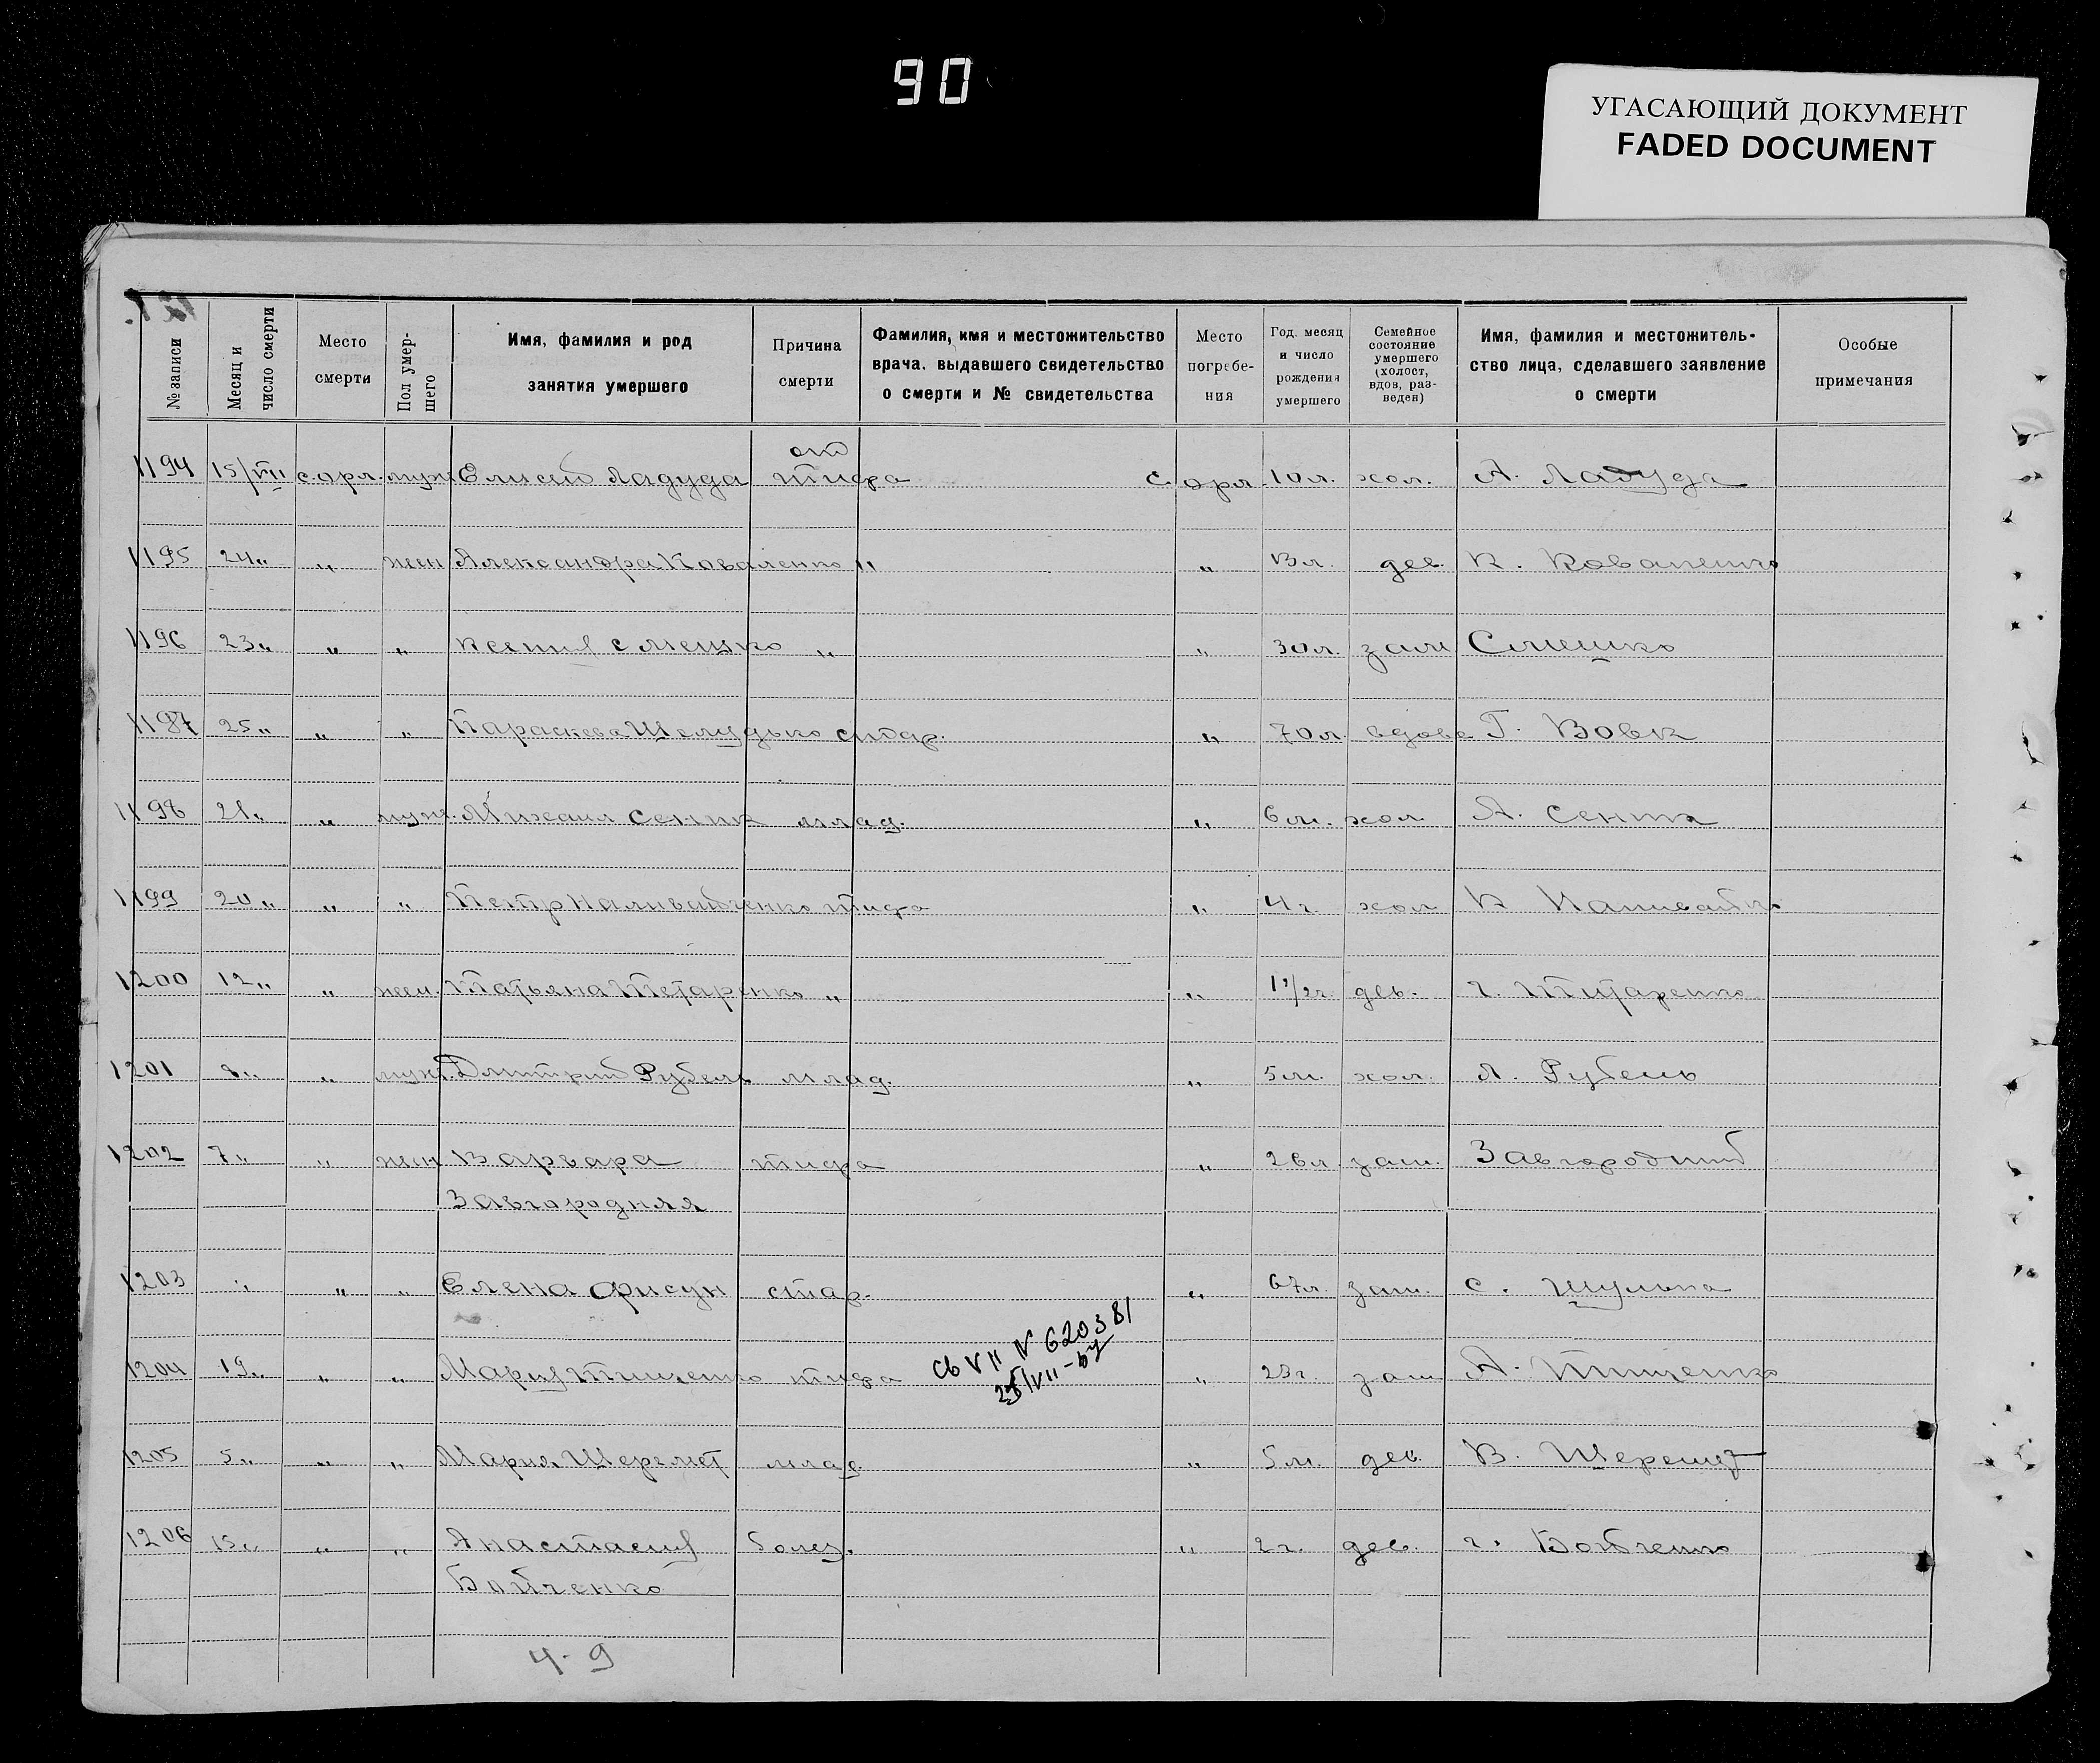 90
УГАСАЮЩИЙ ДОКУМЕНТ
FADED DOCUMENT
№ записи
Месяц и число смерти
Место смерти
Пол умер-шего
Имя, фамилия и род занятия умершего
Причина смерти
Фамилия, имя и местожительство врача, выдавшего свидетельство о смерти и № свидетельства
Место погребе-ния
Год, месяц и число рождения умершего
Семейное состояние умершего (холост, вдов, раз-веден)
Имя, фамилия и местожитель-ство лица, сделавшего заявление о смерти
Особые примечания
1194 15/VII с. орл. муж Елисей Ладуда от тифа с. орл. 10 л. хол. А. Ладуда
1195 24 „ „ жен Александра Коваленко „ „ 13 л. дев. К. Коваленко
1196 23 „ „ „ Ксения Смешко „ „ 30 л. зам Смешко
1197 25 „ „ „ Параскева Шелудько стар. „ 70 л. вдова Г. Вовк
1198 21 „ „ муж. Михаил Сеник млад. „ 6 м. хол. А. Сеник
1199 20 „ „ „ Петр Наливайченко тифа „ 4 г. хол К
1200 12 „ „ жен. Татьяна Тетаренко „ „ 1 1/2 г. дев. г. Титаренко
1201 8 „ „ муж. Дмитрий Рубель млад. „ 5 м. хол. Рубель
1202 7 „ „ жен Варвара тифа „ 26 л. зам. Завгородний
Завгородняя
1203 „ „ „ Елена Фисун стар. „ 67 л. зам. с. Шульга
1204 19 „ „ „ Мария Тищенко тифа СЬ VII № 620381 „ 23 г. зам А. Тищенко
25/VII-
1205 5 „ „ „ Мария Шеремет млад. „ 5 м. дев. В. Шеремет
1206 15 „ „ „ Анастасия болез. „ 2 г. дев. г. Бойченко
Бойченко
4-9